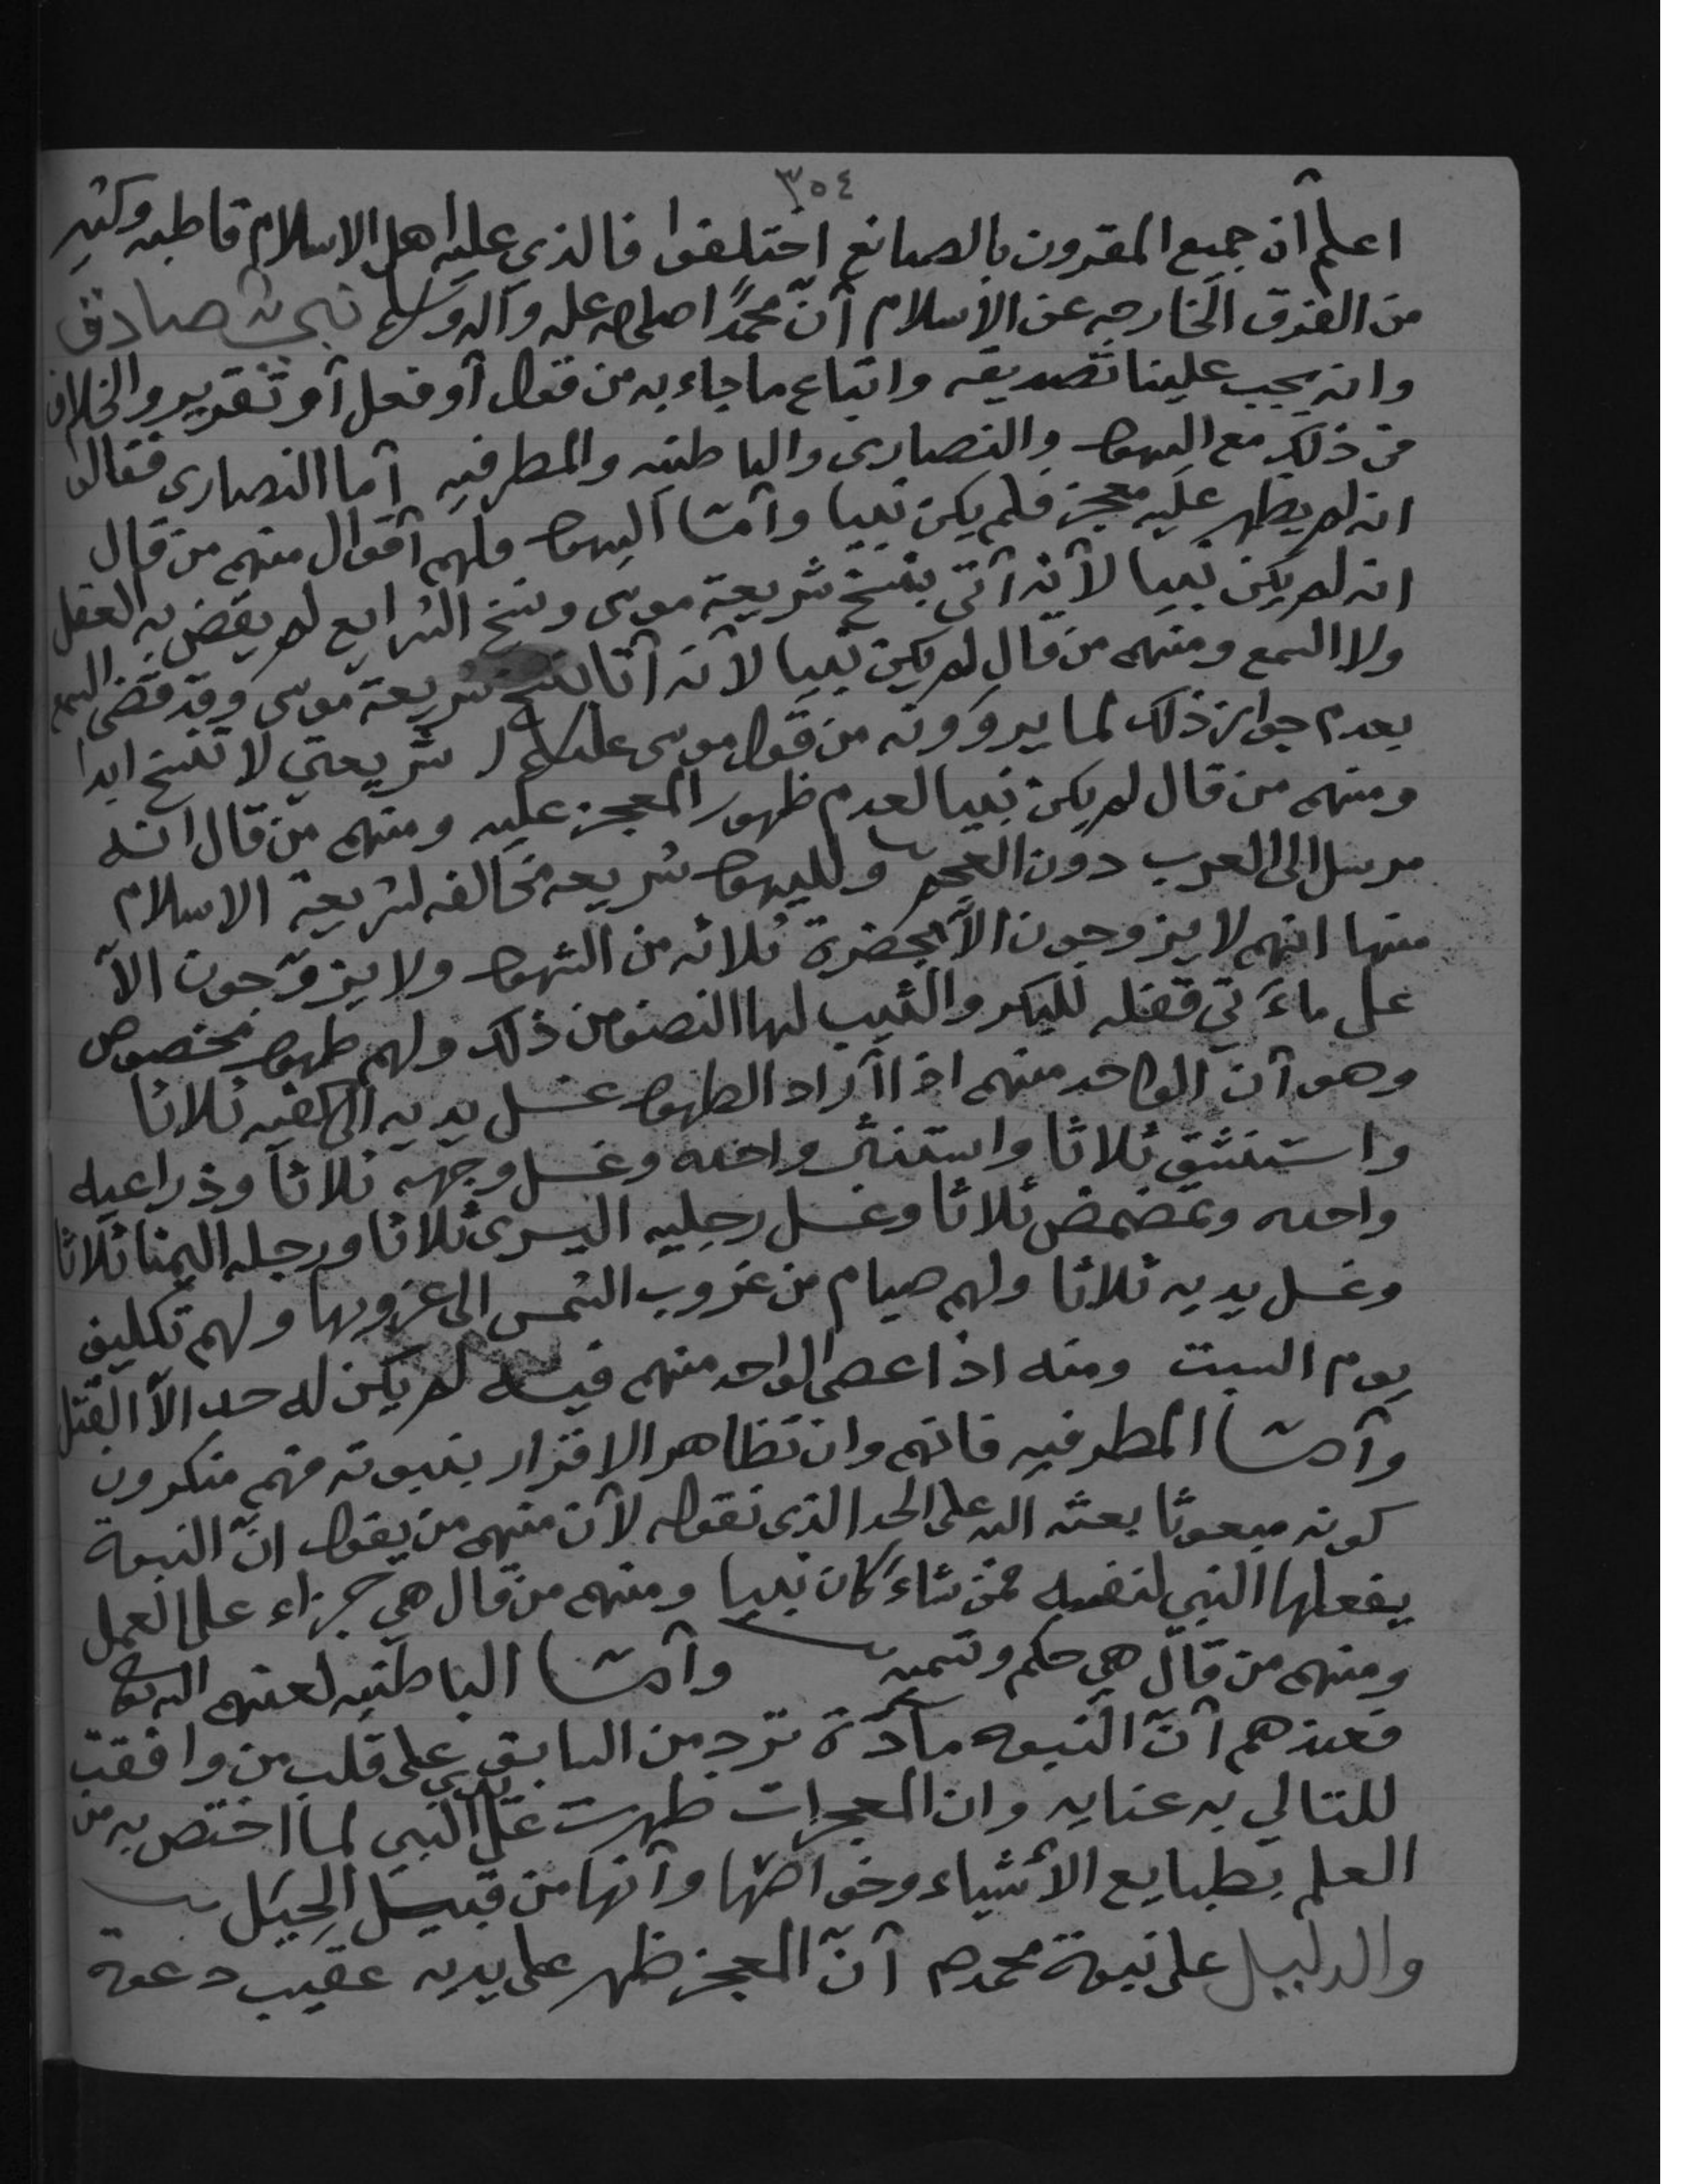 ٣٥٤
اعلم أن جميع المقرون بالصانع اختلفوا فالذي عليه اهل الاسلام قاطبه وكثير
من الفرق الخارجه عن الاسلام أنّ محمدًا صلى الله عليه وآله وسلم نبيٌ صادق
وانه يجب علينا تصديقه واتباع ما جاء به من قول أو فعل أو تقرير والخلاف
في ذلك مع اليهود والنصارى والباطنيه والمطرفيه أما النصارى فقالوا
انه لم يظهر عليه معجز فلم يكن نبيا وأمّا اليهود فلهم أقوال منهم من قال
انه لم يكن نبيا لأنه أتى بنسخ شريعة موسى ونسخ الشرايع لم يقض به العقل
ولا السمع ومنهم من قال لم يكن نبيا لأنه أتا بنسخ شريعة موسى وقد قضى السمع
بعدم جواز ذلك لما يروونه من قول موسى عليلم شريعتي لا تنسخ ابدا
ومنهم من قال لم يكن نبيا لعدم ظهور المعجز عليه ومنهم من قال انه
مرسل الى العرب دون العجم ولليهود شريعه مخالفه لشريعة الاسلام
منها انهم لا يزوجون الاّ بحضرة ثلاثه من الشهود ولا يزوّجون الاّ
على مائتي قفله للبكر والثيب لها النصف من ذلك ولهم طهور مخصوص
وهو أن الواحد منهم اذا أراد الطهور غسل يديه الى كفيه ثلاثا
واستنشق ثلاثا واستنثر واحده وغسل وجهه ثلاثاً وذراعيه
واحده وتمضمض ثلاثا وغسل رجليه اليسرى ثلاثا ورجله اليمنا ثلاثا
وغسل يديه ثلاثا ولهم صيام من غروب الشمس الى غروبها ولهم تكليف
يوم السبت ومنه اذا عصى الواحد منهم فيه لم يكن له حد الاّ القتل
وأمّا المطرفيه فانهم وان تظاهر الاقرار بنبوته فهم منكرون
كونه مبعوثا بعثه الله على الحد الذي نقوله لأن منهم من يقول انّ النبوة
يفعلها النبي لنفسه فمن شاء كان نبيا ومنهم من قال هي جزاء على العمل
ومنهم من قال هي حكم وتسميه وأمّا الباطنيه لعنهم الله تعالى
فعندهم أنّ النبوه مادّة ترد من السابق على قلب من وافقت
للتالي به عنايه وان المعجزات ظهرت على يدي النبي لما اختص به من
العلم بطبايع الأشياء وخواصّها وأنها من قبيل الحِيَل
والدليل على نبوة محمد صم أنّ المعجز ظهر على يديه عقيب دعوة